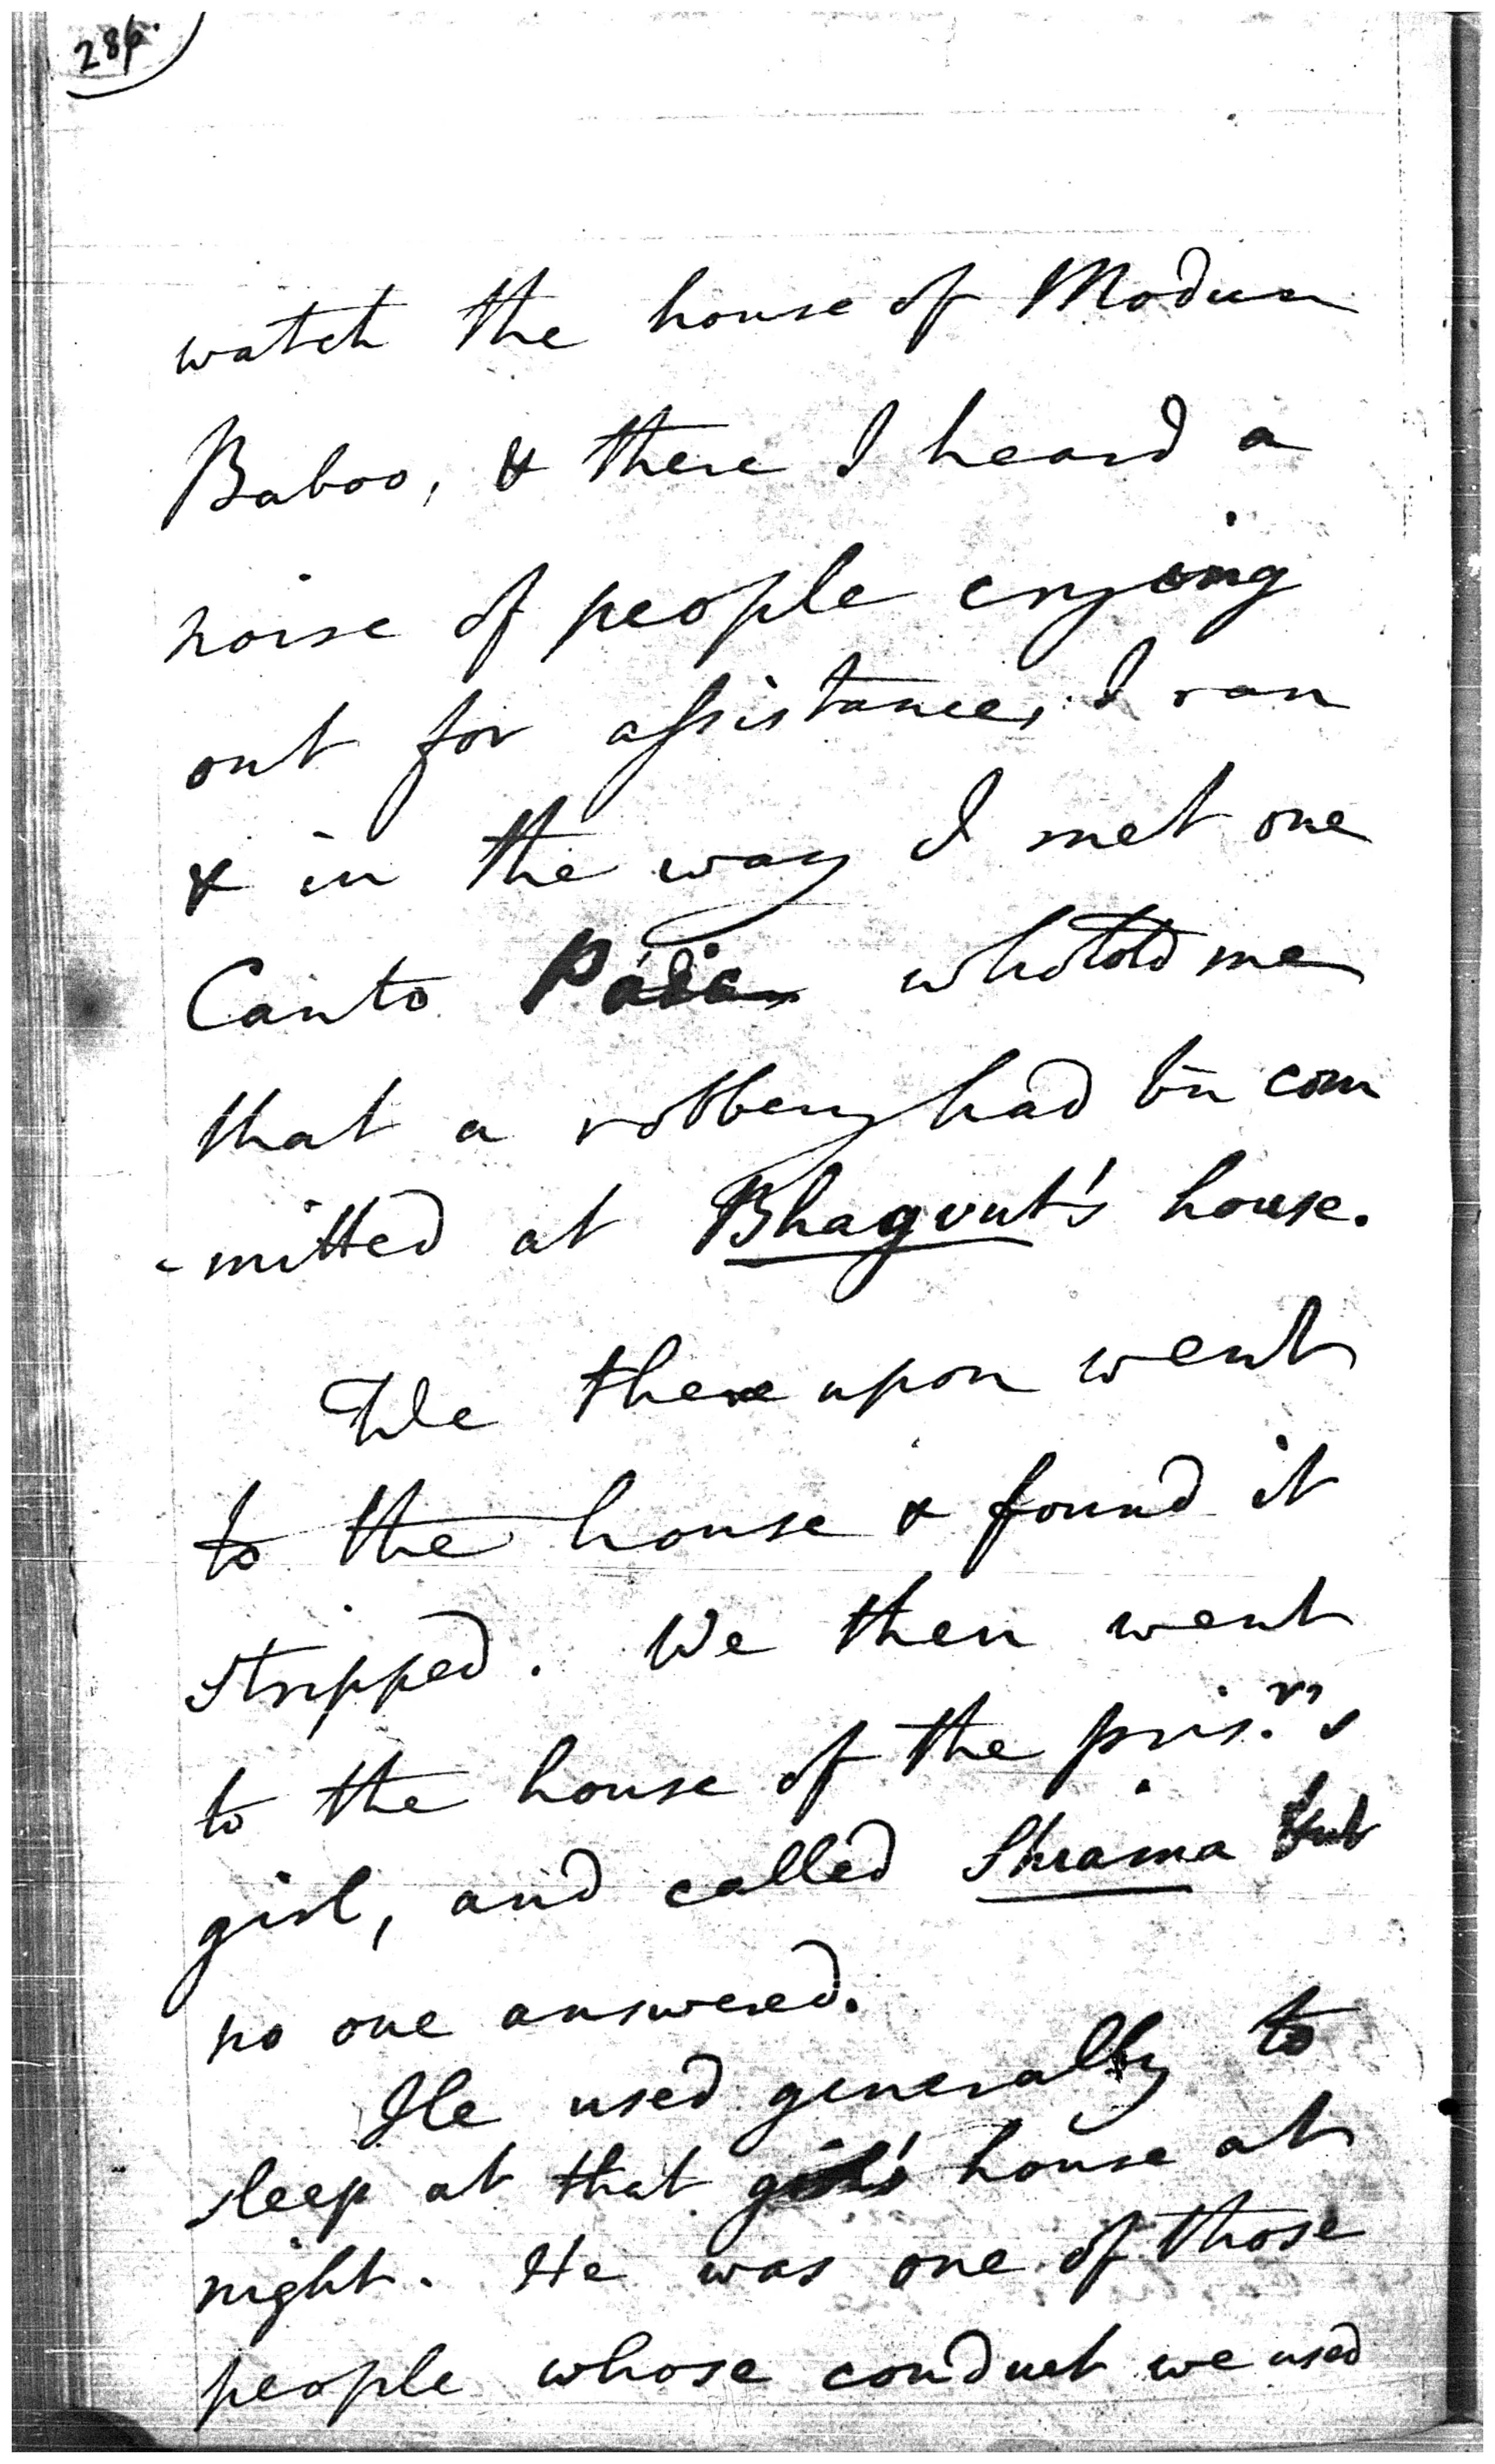 286.
watch the house of Modun
Baboo, & there I heard a
noise of people crying
out for assistance, I ran
& in the way I met one
Canto who told me
that a robbery had bn com
-mitted at Bhagvut's house.
We thereupon went
to the house & found it
stripped. We then went
to the house of the pris.rs
girl, and called Shrama but
no one answered.
He used generally to
sleep at that girl's house at
night. He was one of those
people whose conduct we used